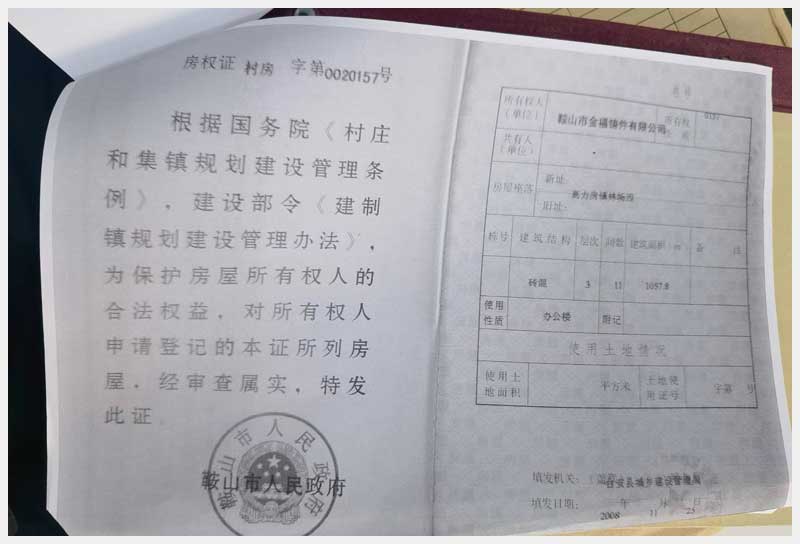 房权证 村房 字第0020157号
根据国务院《村庄
和集镇规划建设管理条
例》，建设部令《建制
镇规划建设管理办法》，
为保护房屋所有权人的
合法权益，对所有权人
申请登记的本证所列房
屋，经审查属实，特发
此证
鞍山市人民政府
鞍山市人民政府
所有权人（单位） 鞍山市金福铸件有限公司 所有权
共有人（单位）
房屋座落 新址： 高力房镇林场西
旧址：
栋号 建筑结构 层次 间数 建筑面积（㎡） 备 注
砖混 3 11 1057.8
使用性质 办公楼 附记
使用土地情况
使用土地面积 平方米 土地使用证号 字第 号
填发机关： 台安县城乡建设管理局
填发日期： 2008 年 11 月 25